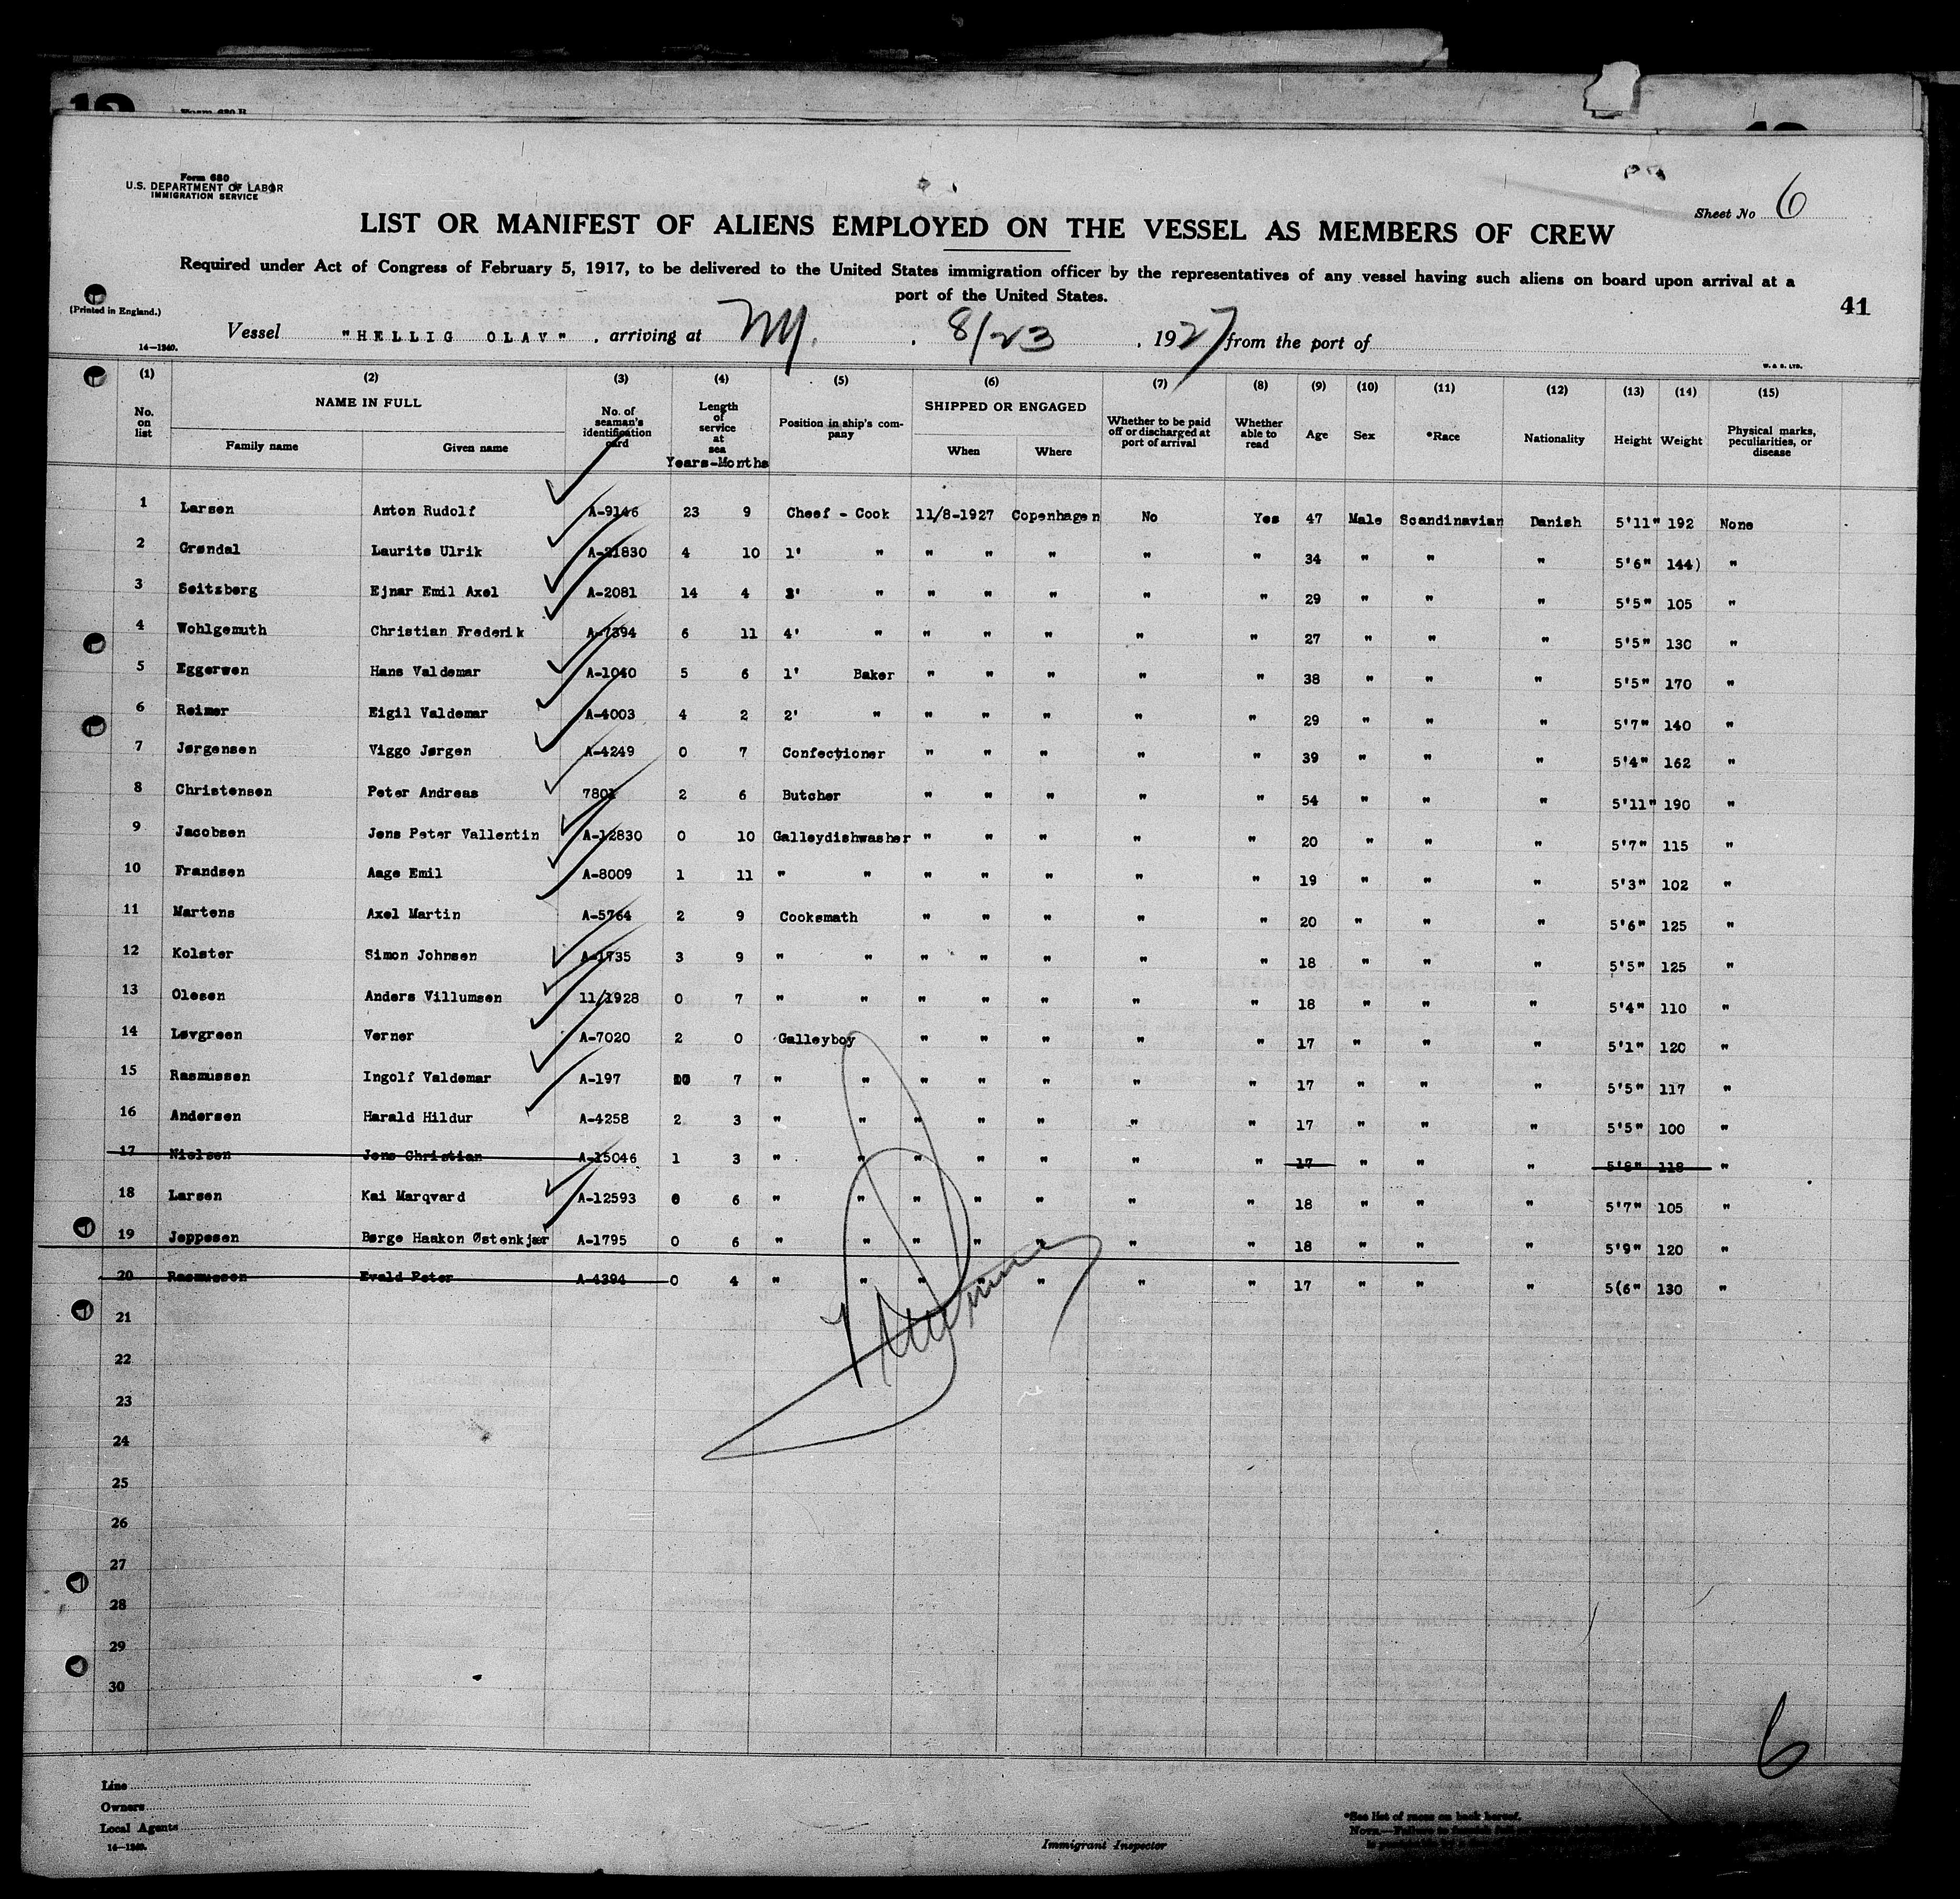 Form 680
U.S. DEPARTMENT OF LABOR
IMMIGRATION SERVICE
Sheet No 6
LIST OR MANIFEST OF ALIENS EMPLOYED ON THE VESSEL AS MEMBERS OF CREW
Required under Act of Congress of February 5, 1917, to be delivered to the United States immigration officer by the representatives of any vessel having such aliens on board upon arrival at a
port of the United States.
41
(Printed in England.)
14—1240.
Vessel "HELLIG OLAV" , arriving at NY. , 8/23 , 1927 from the port of
W. & S. LTD.
(1) (2) (3) (4) (5) (6) (7) (8) (9) (10) (11) (12) (13) (14) (15)
No. on list NAME IN FULL Family name Given name No. of seaman's identification card Length of service at sea Years-Months Position in ship's company SHIPPED OR ENGAGED When Where Whether to be paid off or discharged at port of arrival Whether able to read Age Sex *Race Nationality Height Weight Physical marks, peculiarities, or disease
1 Larsen Anton Rudolf A-9146 23 9 Cheef - Cook 11/8-1927 Copenhagen No Yes 47 Male Scandinavian Danish 5'11" 192 None
2 Grøndal Laurits Ulrik A-21830 4 10 1' " " " " " " 34 " " " 5'6" 144) "
3 Seitzberg Ejnar Emil Axel A-2081 14 4 " " " " " " 29 " " " 5'5" 105 "
4 Wohlgemuth Christian Frederik A-7394 6 11 4' " " " " " " 27 " " " 5'5" 130 "
5 Eggersen Hans Valdemar A-1040 5 6 1' Baker " " " " " 38 " " " 5'5" 170 "
6 Reimer Eigil Valdemar A-4003 4 2 2' " " " " " " 29 " " " 5'7" 140 "
7 Jørgensen Viggo Jørgen A-4249 0 7 Confectioner " " " " " 39 " " " 5'4" 162 "
8 Christensen Peter Andreas 7801 2 6 Butcher " " " " " 54 " " " 5'11" 190 "
9 Jacobsen Jens Peter Vallentin A-12830 0 10 Galleydishwasher " " " " " 20 " " " 5'7" 115 "
10 Frandsen Aage Emil A-8009 1 11 " " " " " " " 19 " " " 5'3" 102 "
11 Martens Axel Martin A-5764 2 9 Cooksmath " " " " " 20 " " " 5'6" 125 "
12 Kolster Simon Johnsen A-1735 3 9 " " " " " " " 18 " " " 5'5" 125 "
13 Olesen Anders Villumsen 11/1928 0 7 " " " " " " " 18 " " " 5'4" 110 "
14 Løvgreen Verner A-7020 2 0 Galleyboy " " " " " 17 " " " 5'1" 120 "
15 Rasmussen Ingolf Valdemar A-197 7 " " " " " " " 17 " " " 5'5" 117 "
16 Andersen Harald Hildur A-4258 2 3 " " " " " " " 17 " " " 5'5" 100 "
17 Nielsen Jens Christian A-15046 1 3 " " " " " " " 17 " " " 5'8" 118 "
18 Larsen Kai Marqvard A-12593 0 6 " " " " " " " 18 " " " 5'7" 105 "
19 Jeppesen Børge Haakon Østenkjær A-1795 0 6 " " " " " " " 18 " " " 5'9" 120 "
20 Rasmussen Evald Peter A-4394 0 4 " " " " " " " 17 " " " 5(6" 130 "
21
22
23
24
25
26
27
28
29
30
6
Line
Owners
Local Agents
14—1240.
Immigrant Inspector
*See list of races on back hereof.